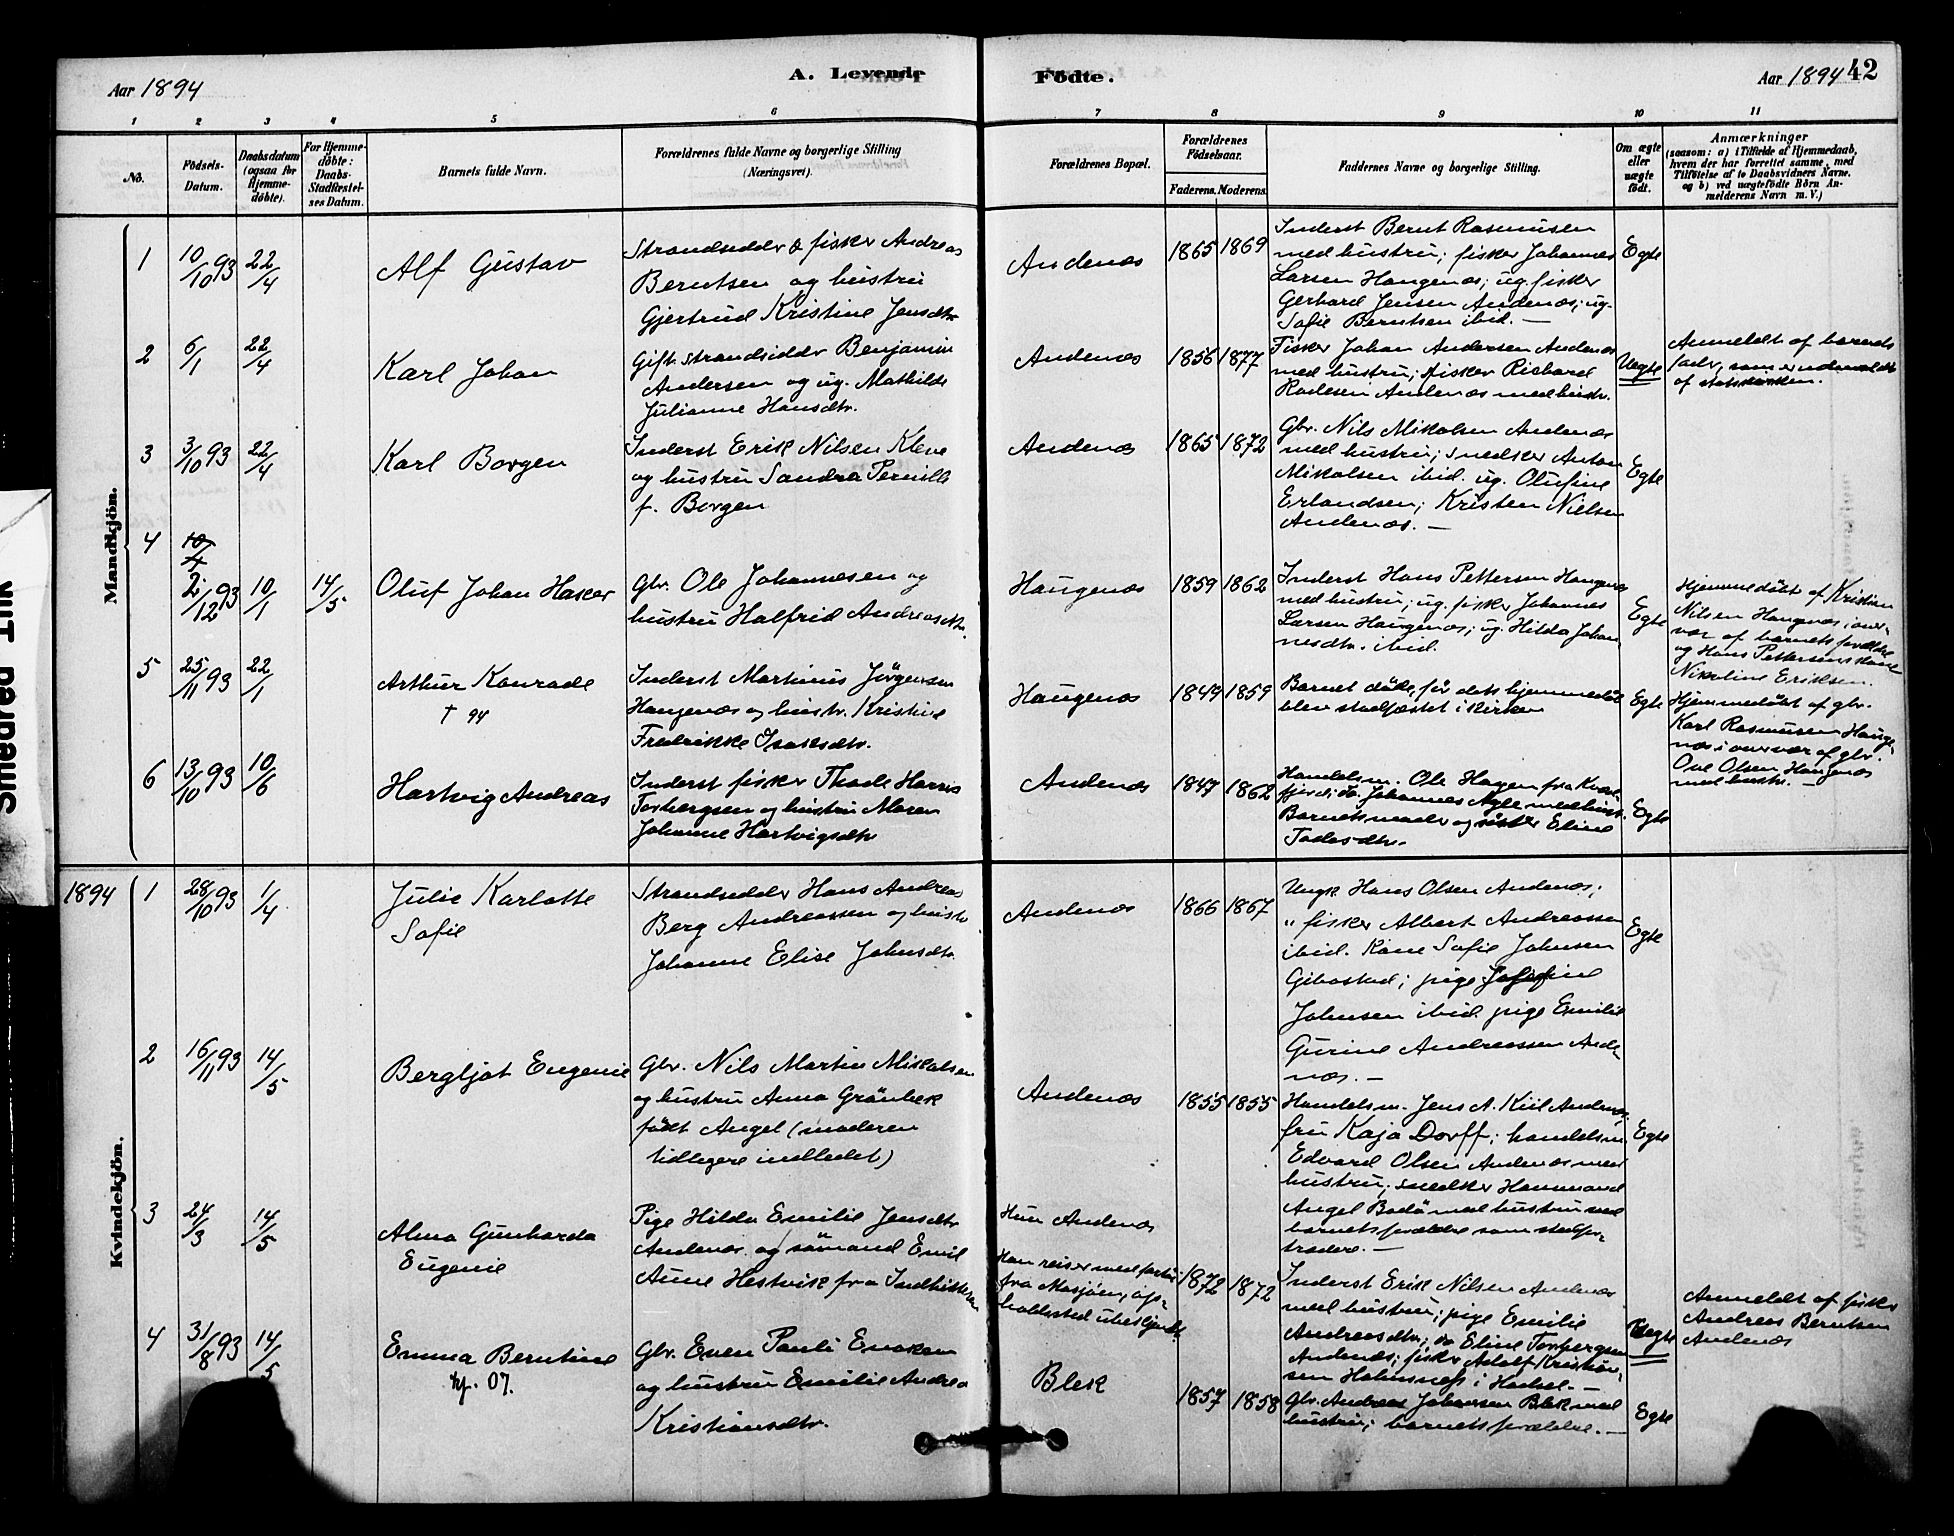 Aar 1894
A. Levende Födte.
Aar 1894
42
1 2 3 4 5 6 7 8 9 10 11
No.
Födsels-Datum.
Daabsdatum (ogsaa for Hjemme-döbte).
For Hjemme-döbte: Daabs-Stadfæstel-ses Datum.
Barnets fulde Navn.
Forældrenes fulde Navne og borgerlige Stilling (Næringsvei).
Forældrenes Bopæl.
Forældrenes Födselsaar.
Faderens. Moderens.
Faddernes Navne og borgerlige Stilling.
Om ægte eller uægte födt.
Anmærkninger
(saasom: a) i Tilfælde af Hjemmedaab, hvem der har forrettet samme, med Tilföielse af to Daabsvidners Navne. og b) ved uægtefödte Börn An-melderens Navn m. V.)
Mandkjön.
1 10/10 93 22/4
Alf Gustav
Strandsidder & fisker Andreas
Berntsen og hustru
Gjertrud Kristine Jensdtr
Andenæs
1865 1869
Inderst Bernt Rasmusen
med hustru; fisker Johannes
Larsen Haugenæs; ug. fisker
Gerhard Jensen Andenæs; ug.
Sofie Berntsen ibid. —
Egte
2 6/1 22/4
Karl Johan
Gift strandsidder Benjamin
Andersen og ug. Mathilde
Julianne Hansdtr.
Andenæs
1856 1877
Fisker Johan Andersen Andenæs
med hustru; fisker Richard
Andenæs med hustr.
Uegte
Anmeldt af barnets
fader, som er udmeldt
af statskirken.
3 3/10 93 22/4
Karl Borgen
Inderst Erik Nilsen Kleve
og hustru Sandra Pernille
f. Borgen
Andenæs
1865 1872
Gbr. Nils Mikalsen Andenæs
med hustru; snedker Anton
Mikalsen ibid. ug. Olufine
Erlandsen; Kristen Nielsen
Andenæs. —
Egte
4 10/4
2/12 93 10/1 14/5
Oluf Johan Hasker
Gbr. Ole Johannesen og
hustru Halfrid Andreasdtr.
Haugenæs
1859 1862
Inderst Hans Pettersen Haugenæs
med hustru; ug. fisker Johannes
Larsen Haugenæs; ug. Hilda Johan-
nesdtr. ibid.
Egte
Hjemmedöbt af Kristian
Nilsen Haugnæs i over-
vær af barnets forældre
og Hans Pettersens kone
Nikoline Eriksen.
5 25/11 93 22/1
Arthur Konrade
† 94
Inderst Martinus Jörgensen
Haugenæs og hustr. Kristine
Fredrikke Isaksdtr.
Haugenæs
1849 1859
Barnet döde, för dets hjemmedåb
blev stadfæstet i kirken
Egte
Hjemmedöbt af gbr.
Karl Rasmusen Hauge-
næs i overvær af gbr.
Ove Olsen Haugenæs
med hustr. —
6 13/10 93 10/6
Hartvig Andreas
Inderst fisker Thade Harris
Torbergsen og hustru Maren
Johanne Hartvigsdtr
Andenæs
1847 1862
Handelsm. Ole Hagen fra Kvæ-
fjord; do. Johannes med hustr.
Barnets moder og söster Eline
Tadesdtr.
Egte
1894
Kvindekjön.
1 28/10 93 1/4
Julie Karlotte
Sofie
Strandsidder Hans Andreas
Berg Andreassen og hustr
Johanne Elise Johnsdtr.
Andenæs
1866 1867
Ungk. Hans Olsen Andenæs;
„ fisker Albert Andreassen
ibid. Kone Sofie Johnsen
Gibostad; pige Josefine
Johnsen ibid. pige Emilie
Gurine Andreassen Ande-
næs. —
Egte
2 16/11 93 14/5
Bergljot Eugenie
Gbr. Nils Martin Mikalsen
og hustru Anna Grönbek
født Angel (moderen
tidligere indledet)
Andenæs
1855 1855
Handelsm. Jens A. Kiil Andenæs
fru Kaja Dorff; handelsm.
Edvard Olsen Andenæs med
hustru; snedker Hammond
Angel Bodö med hustru med
barnets forældre som stedfor-
trædere. —
Egte
3 24/3 14/5
Alma Gunharda
Eugenie
Pige Hilda Emilie Jensdtr
Andenæs og sömand Emil
Aune Hestvik fra Indhitteren
Hun Andenæs
Han reiser med fartöi
fra Mosjöen, op-
holdssted ubekjendt
1872 1872
Inderst Erik Nilsen Andenæs
med hustru; pige Emilie
Andreasdtr; do Eline Torbergsen
Andenæs; fisker Adolf Kristian-
sen Holmsnes i Hadsel. —
Uegte
Anmeldt af fisker
Andreas Berntsen
Andenæs
4 31/8 93 14/5
Emma Berntine
kf. 07.
Gbr. Even Pauli Enoksen
og hustru Emilie Andrea
Kristiansdtr.
Blek
1857 1858
Gbr. Andreas Johansen Blek med
hustru; barnets forældre. —
Egte